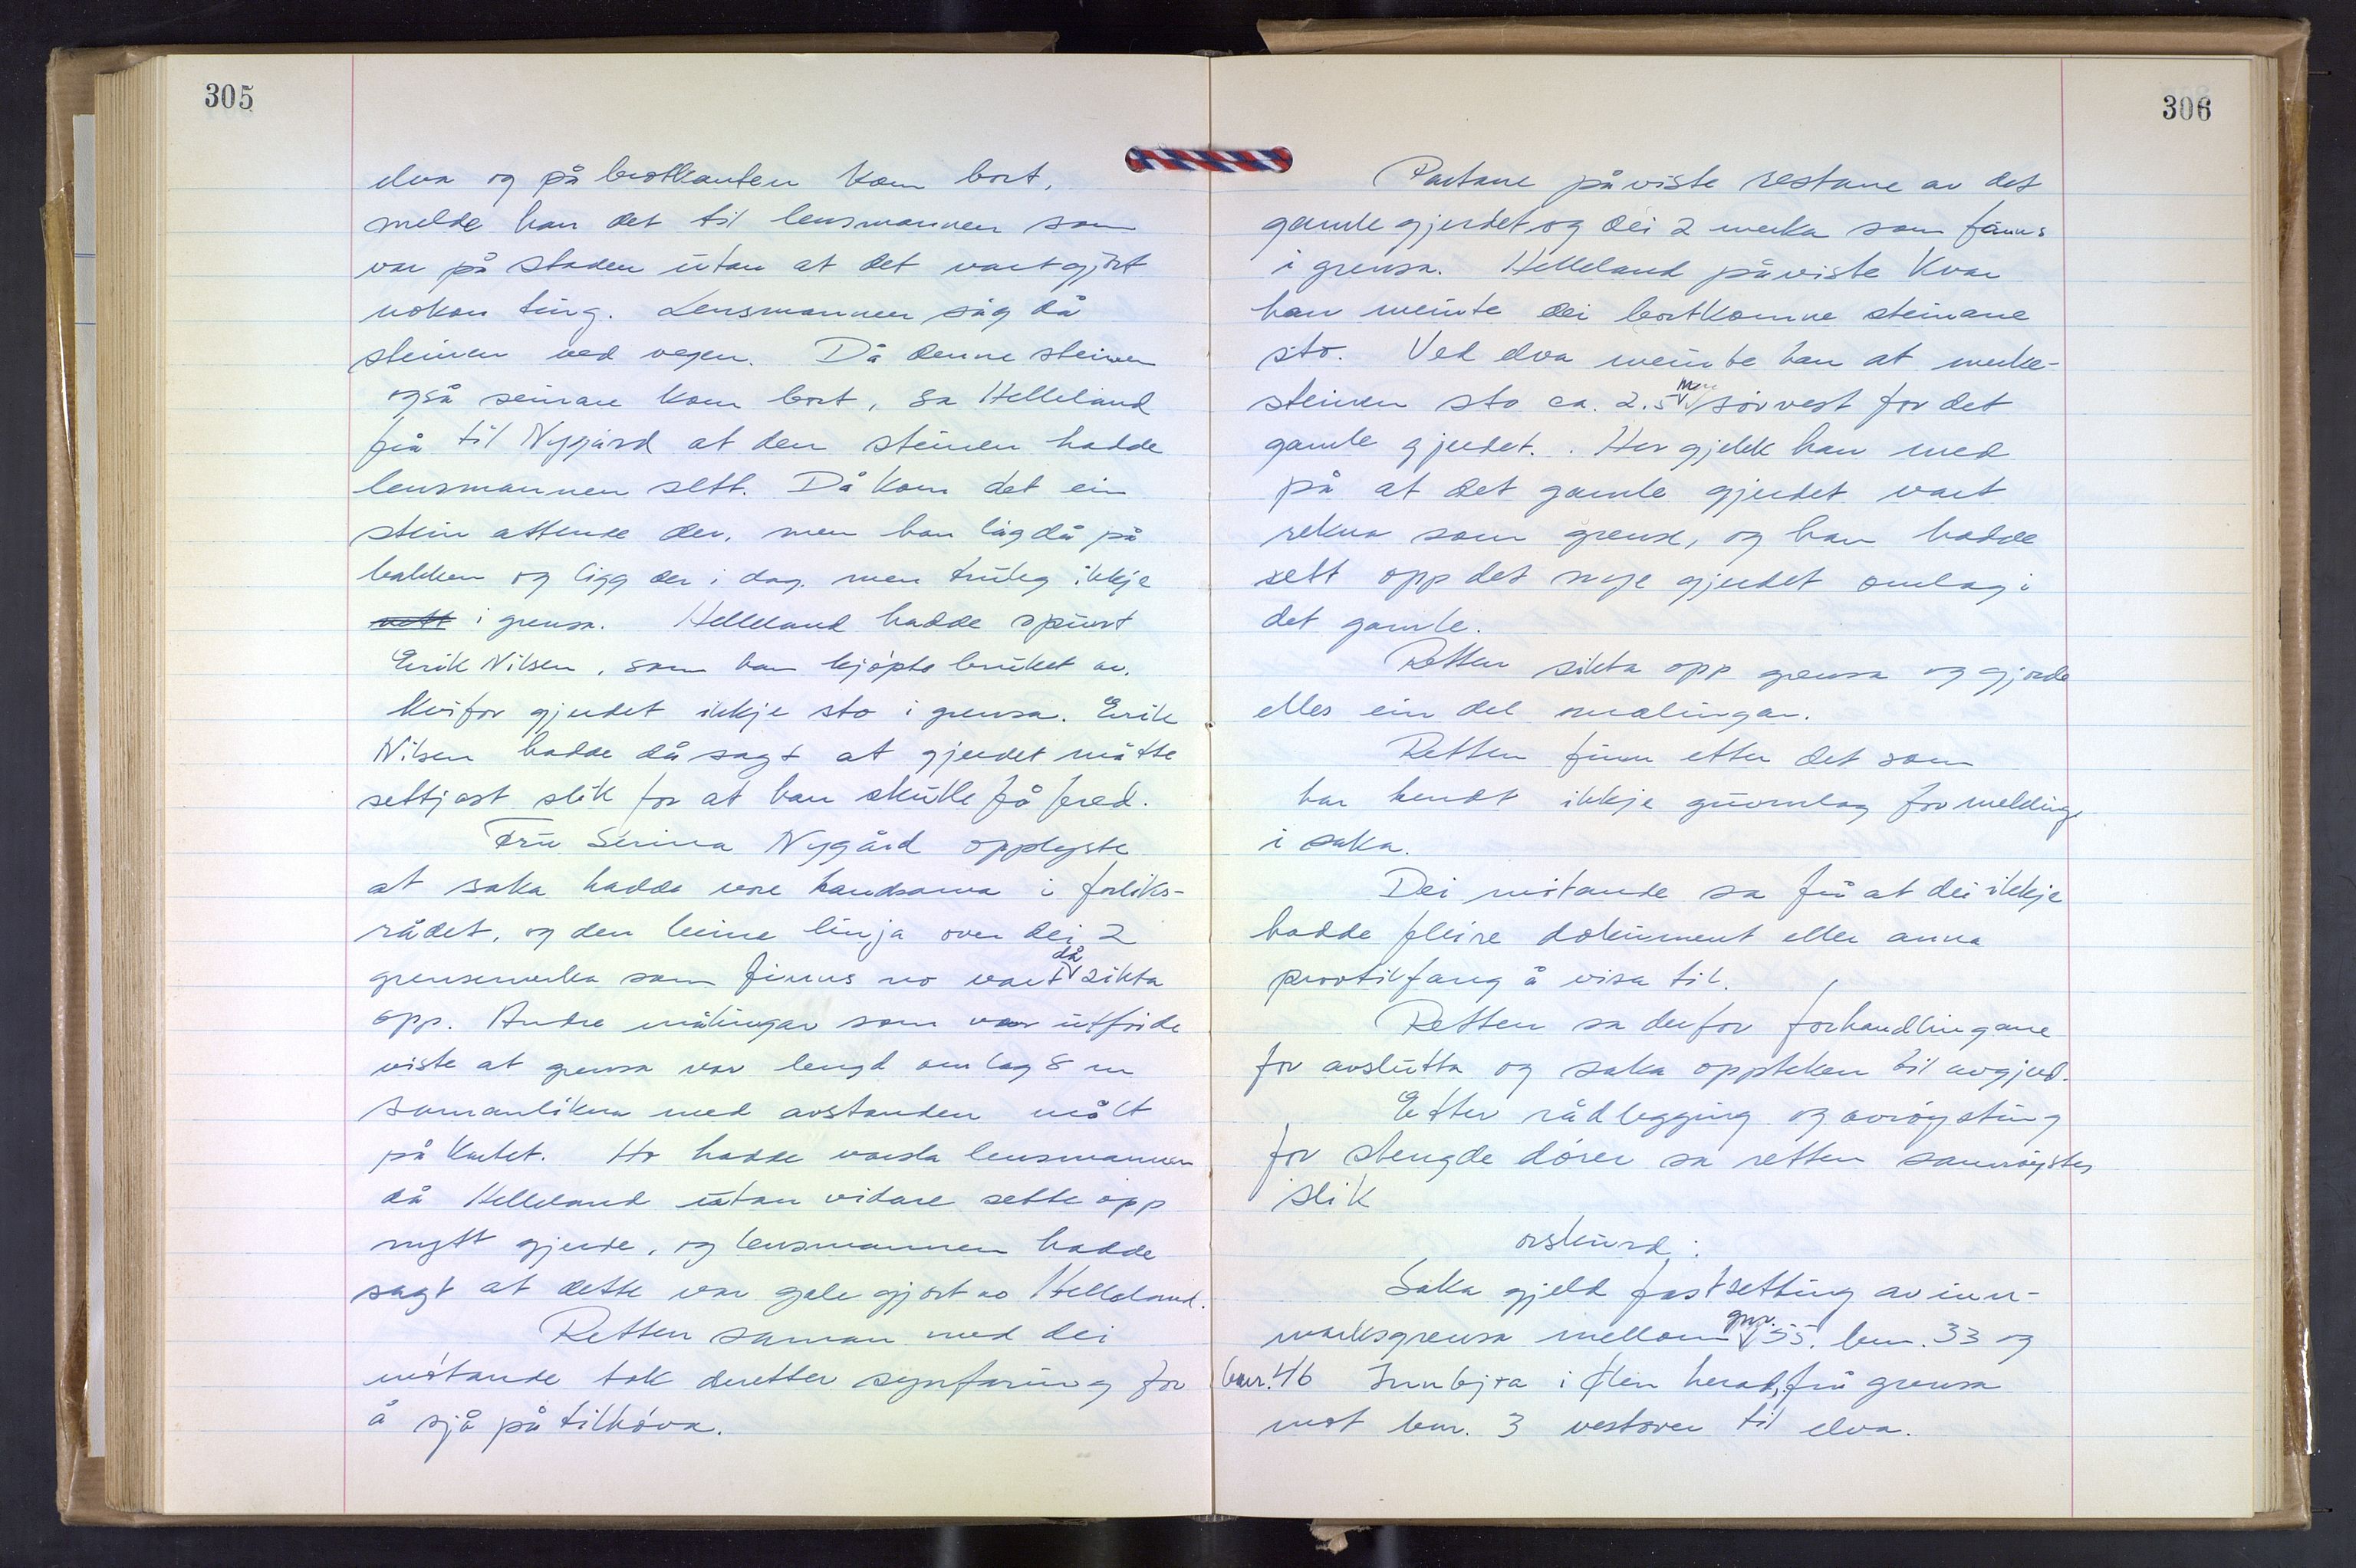 305
elva og på brotkanten kom bort,
melde han det til lensmannen som
var på staden utan at det vart gjort
nokon ting. Lensmannen såg då
steinen ved vegen. Då denne steinen
også seinare kom bort, sa Helleland
frå til Nygård at den steinen hadde
lensmannen sett. Då kom det ein
stein attende der, men han låg då på
bakken og ligg der i dag, men truleg ikkje
rett i grensa. Helleland hadde spurt
Erik Nilsen, som han kjøpte bruket av,
kvifor gjerdet ikkje sto i grensa. Erik
Nilsen hadde då sagt at gjerdet måtte
settjast slik for at han skulle få fred.
Fru Serina Nygård opplyste
at saka hadde vore handsama i forliks-
rådet, og den beine linja over dei 2
grensemerka som finns no vart då sikta
opp. Andre målingar som var utførde
viste at grensa var lengd om lag 8 m
samanlikna med avstanden målt
på kartet. Ho hadde varsla lensmannen
då Helleland utan vidare sette opp
nytt gjerde, og lensmannen hadde
sagt at dette var gale gjort av Helleland.
Retten saman med dei
møtande tok deretter synfaring for
å sjå på tilhøva.
306
Partane påviste restane av det
gamle gjerdet og dei 2 merka som finns
i grensa. Helleland påviste kvar
han meinte dei bortkomne steinane
sto. Ved elva meinte han at merke-
steinen sto ca. 2.5 m sørvest for det
gamle gjerdet. Her gjekk han med
på at det gamle gjerdet vart
rekna som grense, og han hadde
sett opp det nye gjerdet omlag i
det gamle.
Retten sikta opp grensa og gjorde
elles ein del målingar.
Retten finn etter det som
har hendt ikkje grunnlag for mekling
i saka.
Dei møtande sa frå at dei ikkje
hadde fleire dokument eller anna
provtilfang å visa til.
Retten sa derfor forhandlingane
for avslutta og saka oppteken til avgjerd.
Etter rådlegging og avrøysting
for stengde dører sa retten samrøystes
slik
orskurd:
Saka gjeld fastsetting av inn-
marksgrensa mellom gnr. 55, bnr. 33 og
bnr. 46 Innbjoa i Ølen herad, frå grensa
mot bnr. 3 vestover til elva.